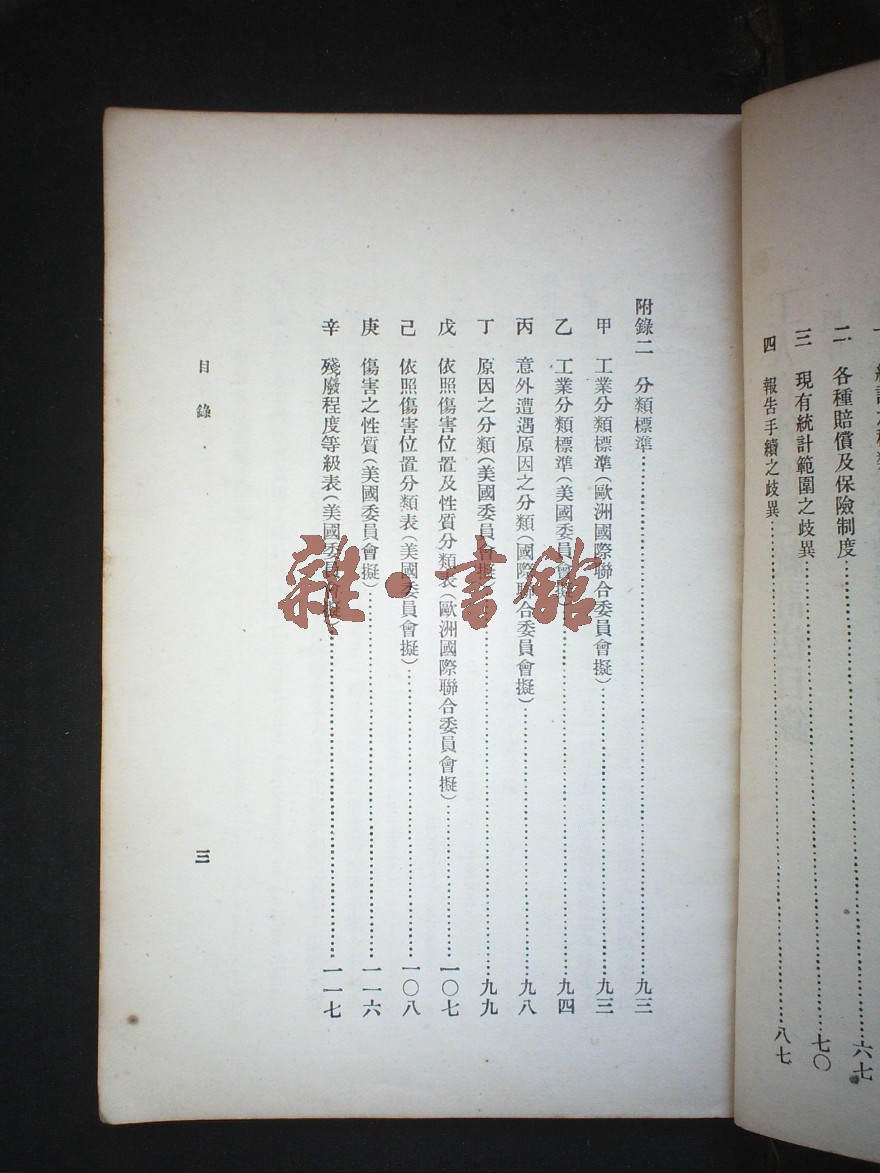 二　各種賠償及保險制度……六七
三　現有統計範圍之歧異……七〇
四　報告手續之歧異……八七
附錄二　分類標準……九三
甲　工業分類標準（歐洲國際聯合委員會擬）……九三
乙　工業分類標準（美國委員會擬）……九四
丙　意外遭遇原因之分類（國際聯合委員會擬）……九八
丁　原因之分類（美國委員會擬）……九九
戊　依照傷害位置及性質分類表（歐洲國際聯合委員會擬）……一〇七
己　依照傷害位置分類表（美國委員會擬）……一〇八
庚　傷害之性質（美國委員會擬）……一一六
辛　殘廢程度等級表（美國委員會擬）……一一七
目錄
三
雜·書館